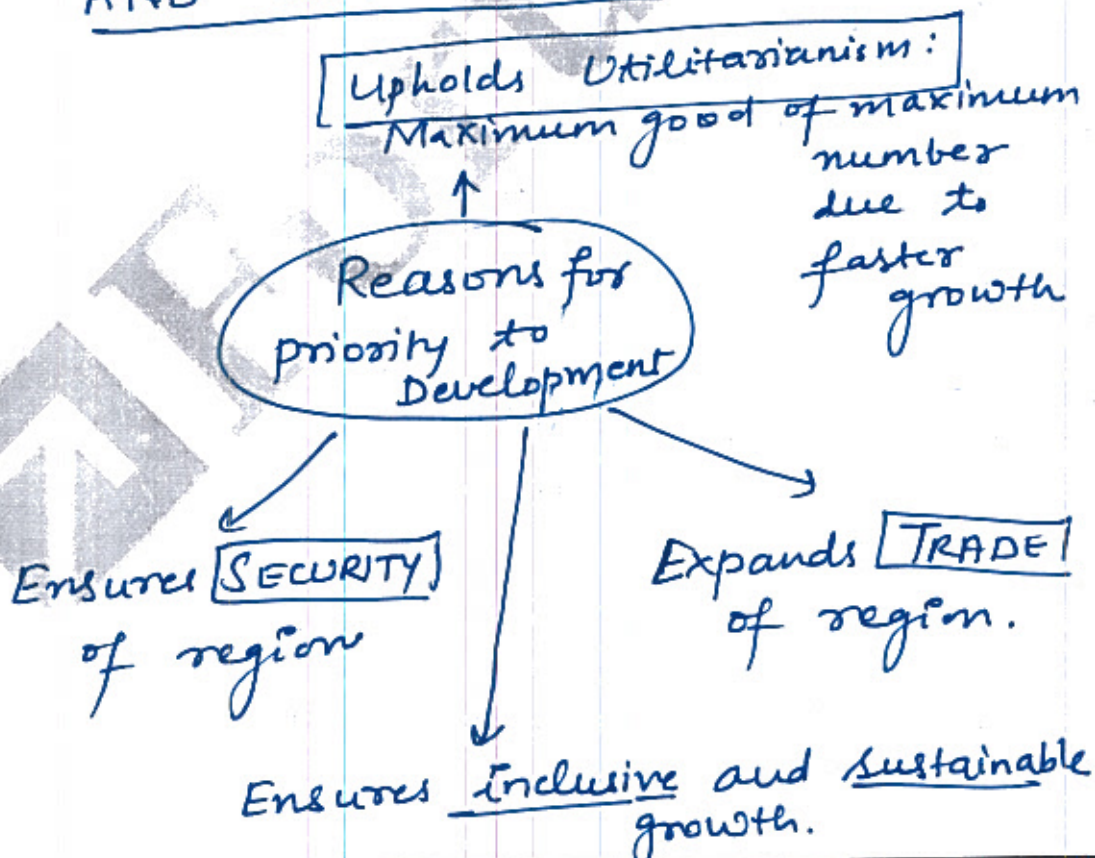 AND
Upholds Utilitarianism:
Maximum good of maximum
number
due to
faster
growth
Reasons for
priority to
Development
Ensures SECURITY
of region
Expands TRADE
of region.
Ensures inclusive and sustainable
growth.